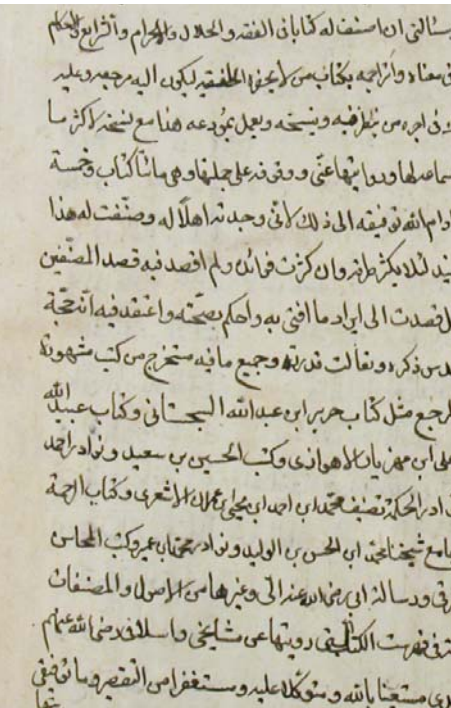 وسالنی ان اصنف له کتابا فی الفقه والحلال والحرام والشرایع والاحکام
فی معناه واترجمه بکتاب من لا یحضره الفقیه لیکون الیه مرجعه وعلیه
فی اجره من ینظر فیه وینسخه ویعمل بمودعه هذا مع نسخه لاکثر ما
سماعه لها وروایتها عنی ووقوفه علی جملتها وهی مائتا کتاب وخمسة
ادام الله توفیقه الی ذلک لانی وجدته اهلا له وصنفت له هذا
لئلا یکثر طرقه وان کثرت فوائده ولم اقصد فیه قصد المصنفین
قصدت الی ایراد ما افتی به واحکم بصحته واعتقد فیه انه حجة
ذکره وتعالت قدرته وجمیع ما فیه مستخرج من کتب مشهورة
المرجع مثل کتاب حریز ابن عبدالله السجستانی وکتاب عبیدالله
علی ابن مهزیار الاهوازی وکتب الحسین بن سعید ونوادر احمد
نوادر الحکمة تصنیف محمد ابن احمد ابن یحیی ابن عمران الاشعری وکتاب الرحمة
جامع شیخنا محمد ابن الحسن بن الولید ونوادر محمد ابن ابی عمیر وکتب المحاسن
ورسالة ابی رضی الله عنه الی وغیرها من الاصول والمصنفات
فی فهرست الکتب التی رویتها عن مشایخی واسلافی رضی الله عنهم
مستعینا بالله ومتوکلا علیه ومستغفرا من التقصیر وما توفیقی